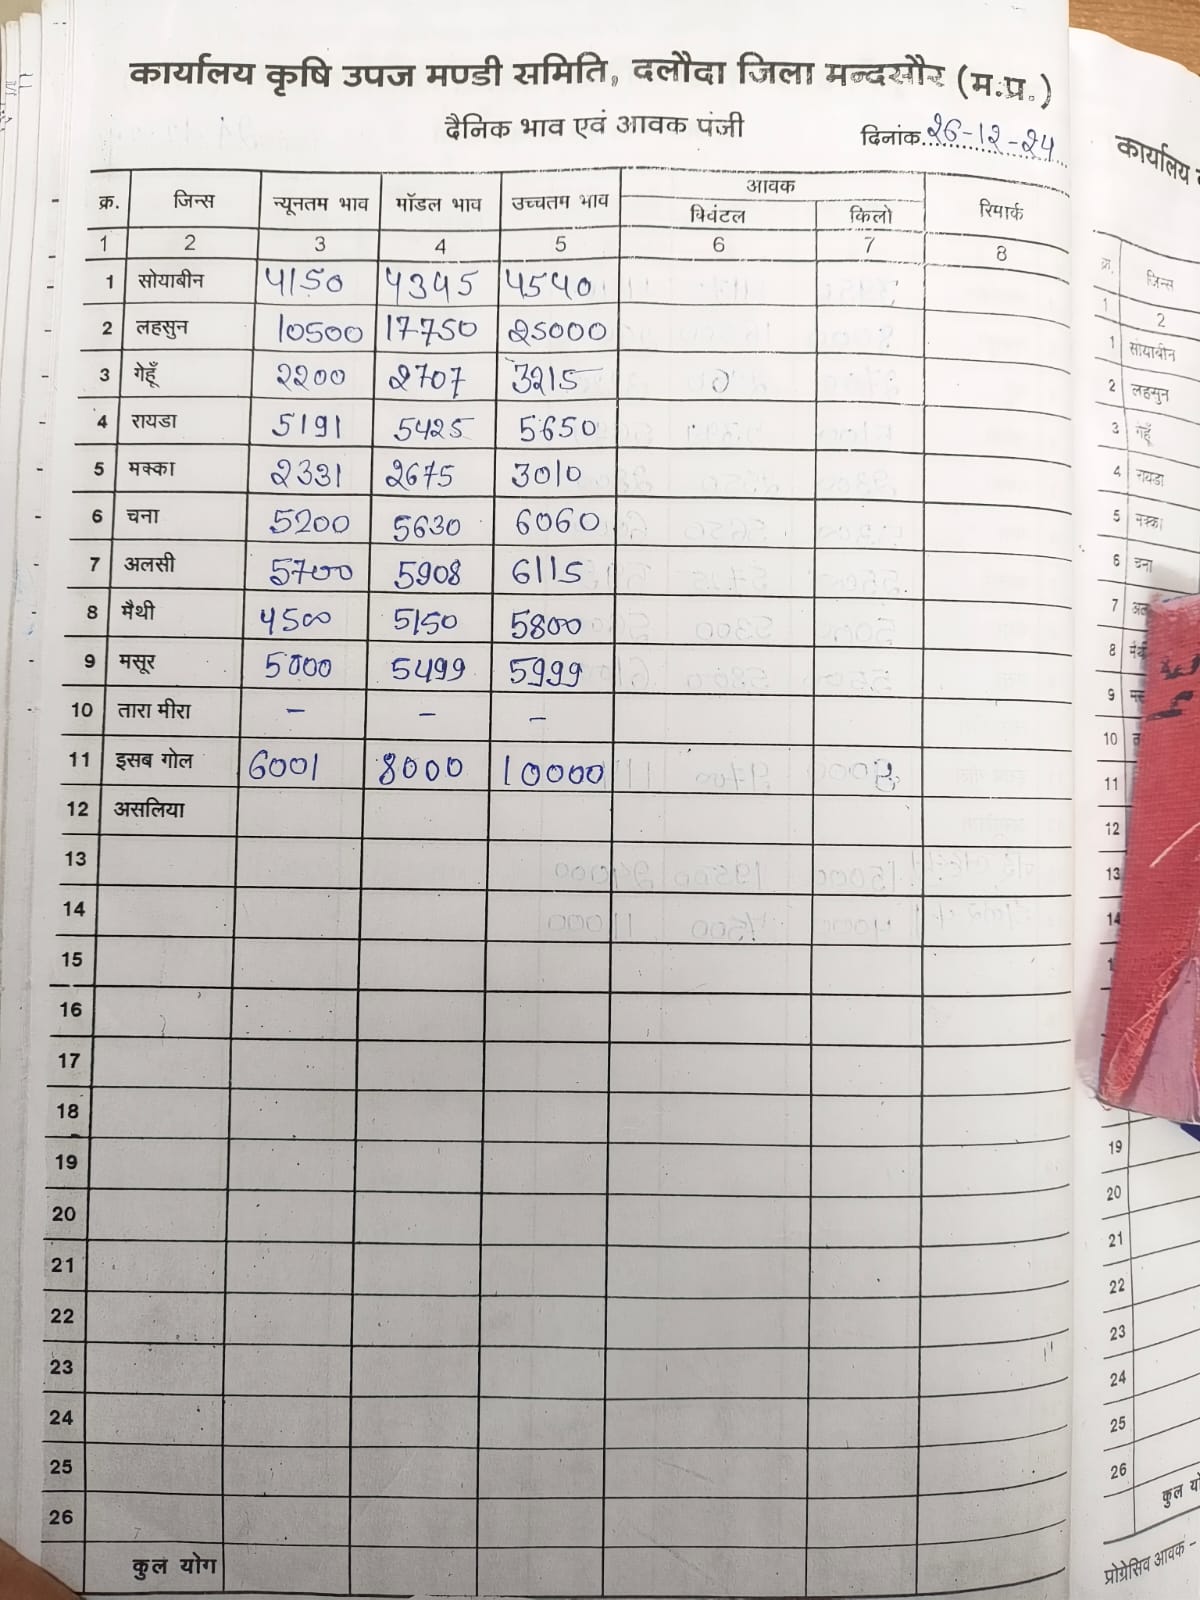 कार्यालय कृषि उपज मण्डी समिति, दलौदा जिला मन्दसौर (म.प्र.)
दैनिक भाव एवं आवक पंजी
दिनांक 26-12-24
क्र. जिन्स न्यूनतम भाव मॉडल भाव उच्चतम भाव आवक रिमार्क
क्विंटल किलो
1 2 3 4 5 6 7 8
1 सोयाबीन 4150 4345 4540
2 लहसुन 10500 17750 25000
3 गेहूँ 2200 2707 3215
4 रायडा 5191 5425 5650
5 मक्का 2331 2675 3010
6 चना 5200 5630 6060
7 अलसी 5700 5908 6115
8 मैथी 4500 5150 5800
9 मसूर 5000 5499 5999
10 तारा मीरा - - -
11 इसब गोल 6001 8000 10000
12 असलिया
13
14
15
16
17
18
19
20
21
22
23
24
25
26
कुल योग
कार्यालय
क्र. जिन्स
1 2
1 सोयाबीन
2 लहसुन
3 गेहूँ
4 रायडा
5 मक्का
6 चना
7
8
9
10
11
12
13
14
19
20
21
22
23
24
25
26
कुल
प्रोग्रेसिव आवक -